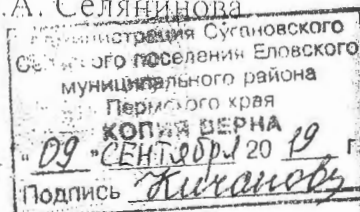 .А. Селянинова
Администрация Сугановского
Сельского поселения Еловского
муниципального района
Пермского края
КОПИЯ ВЕРНА
"09" СЕНТЯБРЯ 2019 г
Подпись